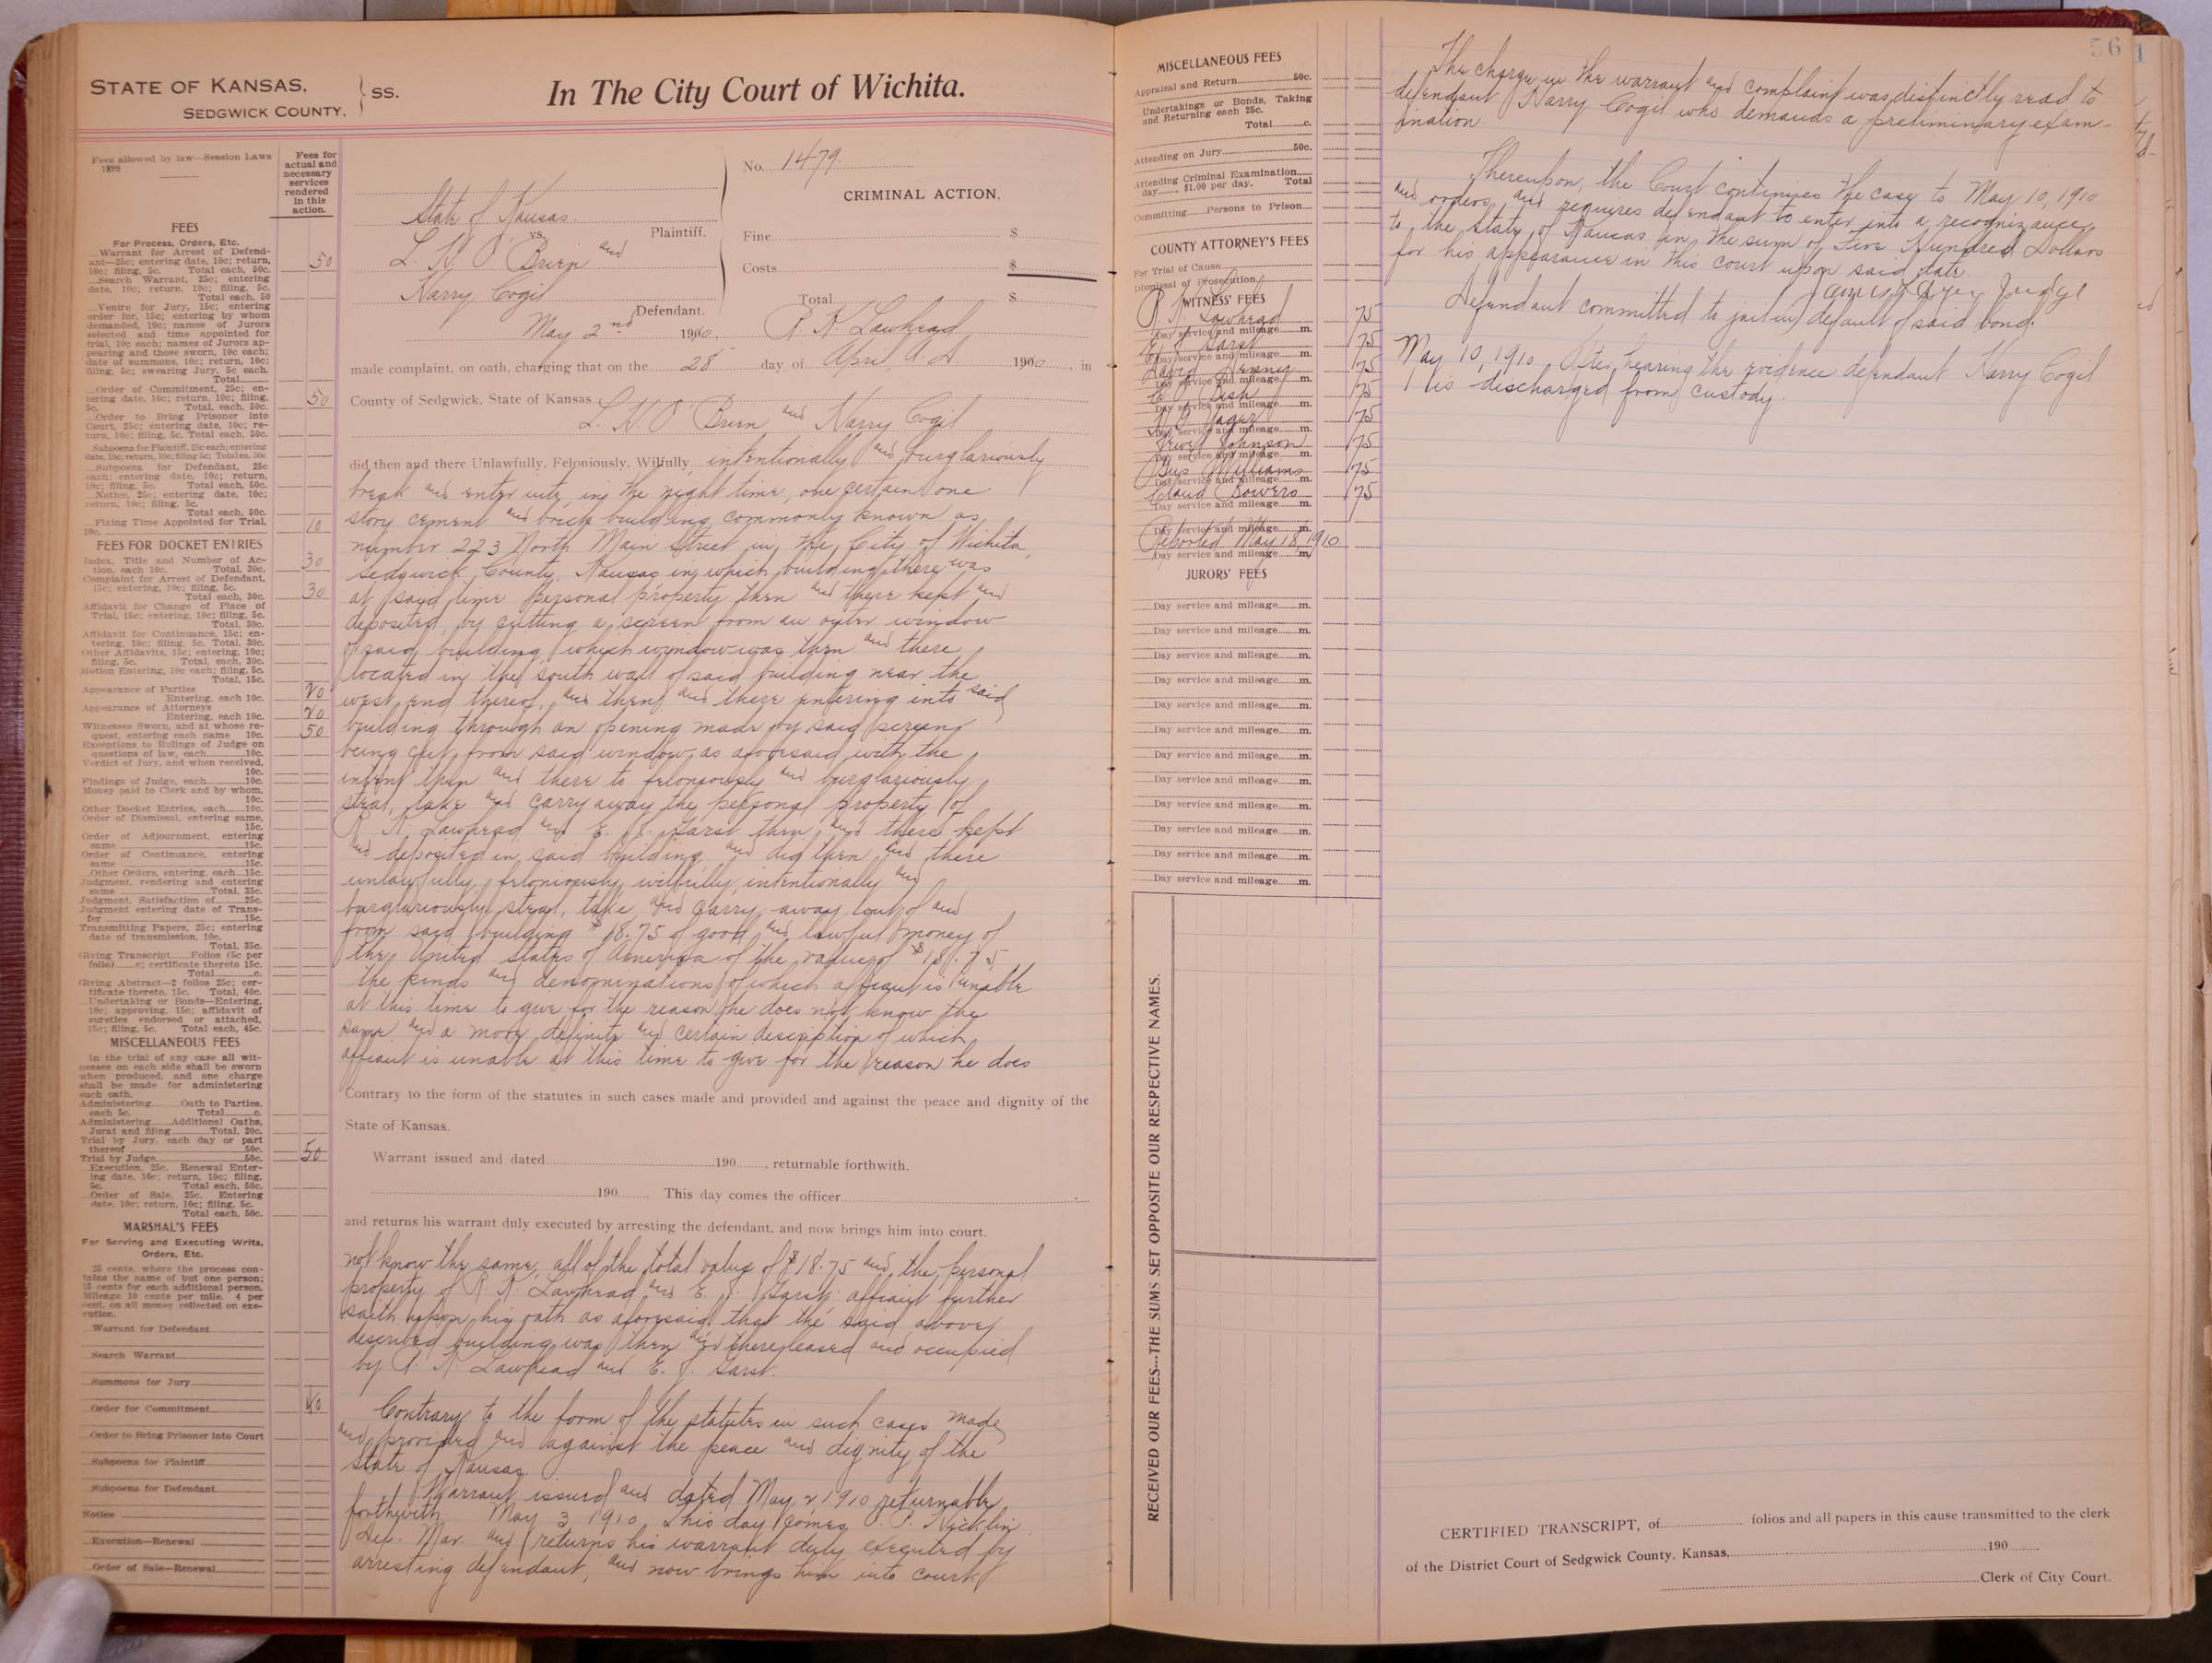 STATE OF KANSAS,
SEDGWICK COUNTY.
ss.
In The City Court of Wichita.
Fees allowed by law—Session Laws
1899
Fees for
actual and
necessary
services
rendered
in this
action.
FEES
For Process, Orders, Etc.
Warrant for Arrest of Defend-
ant—25c; entering date, 10c; return,
10c; filing, 5c. Total each, 50c. 50
Search Warrant, 25c; entering
date, 10c; return, 10c; filing, 5c.
Total each, 50
Venire for Jury, 15c; entering
order for, 15c; entering by whom
demanded, 10c; names of Jurors
selected and time appointed for
trial, 10c each; names of Jurors ap-
pearing and those sworn, 10c each;
date of summons, 10c; return, 10c;
filing, 5c; swearing Jury, 5c each.
Total
Order of Commitment, 25c; en-
tering date, 10c; return, 10c; filing,
5c. Total, each, 50c. 50
Order to Bring Prisoner into
Court, 25c; entering date, 10c; re-
turn, 10c; filing, 5c. Total each, 50c.
Subpoena for Plaintiff, 25c each; entering
date, 10c; return, 10c; filing 5c; Total ea. 50c
Subpoena for Defendant, 25c
each; entering date, 10c; return,
10c; filing, 5c. Total each, 50c.
Notice, 25c; entering date, 10c;
return, 10c; filing, 5c.
Total each, 50c.
Fixing Time Appointed for Trial,
10c. 10
FEES FOR DOCKET ENTRIES
Index, Title and Number of Ac-
tion, each 10c. Total, 30c. 30
Complaint for Arrest of Defendant,
15c; entering, 10c; filing, 5c.
Total each, 30c. 30
Affidavit for Change of Place of
Trial, 15c; entering, 10c; filing, 5c.
Total, 30c.
Affidavit for Continuance, 15c; en-
tering, 10c; filing, 5c. Total, 30c.
Other Affidavits, 15c; entering, 10c;
filing, 5c. Total, each, 30c.
Motion Entering, 10c each; filing, 5c.
Total, 15c.
Appearance of Parties
Entering, each 10c. 20
Appearance of Attorneys
Entering, each 10c. 20
Witnesses Sworn, and at whose re-
quest, entering each name 10c. 50
Exceptions to Rulings of Judge on
questions of law, each 10c.
Verdict of Jury, and when received,
10c.
Findings of Judge, each 10c.
Money paid to Clerk and by whom,
10c.
Other Docket Entries, each 10c.
Order of Dismissal, entering same,
15c.
Order of Adjournment, entering
same 15c.
Order of Continuance, entering
same 15c.
Other Orders, entering, each 15c.
Judgment, rendering and entering
same Total, 25c.
Judgment, Satisfaction of 25c.
Judgment entering date of Trans-
fer 15c.
Transmitting Papers, 25c; entering
date of transmission, 10c.
Total, 35c.
Giving Transcript Folios (5c per
folio) c; certificate thereto 15c.
Total c.
Giving Abstract—2 folios 25c; cer-
tificate thereto, 15c. Total, 40c.
Undertaking or Bonds—Entering,
10c; approving, 15c; affidavit of
sureties endorsed or attached,
15c; filing, 5c. Total each, 45c.
MISCELLANEOUS FEES
In the trial of any case all wit-
nesses on each side shall be sworn
when produced, and one charge
shall be made for administering
such oath.
Administering Oath to Parties,
each 5c. Total c.
Administering Additional Oaths,
Jurat and filing Total, 20c.
Trial by Jury, each day or part
thereof 50c.
Trial by Judge 50c. 50
Execution, 25c. Renewal Enter-
ing date, 10c; return, 10c; filing,
5c. Total each, 50c.
Order of Sale, 25c. Entering
date, 10c; return, 10c; filing, 5c.
Total each, 50c.
MARSHAL'S FEES
For Serving and Executing Writs,
Orders, Etc.
25 cents, where the process con-
tains the name of but one person;
15 cents for each additional person.
Mileage 10 cents per mile. 4 per
cent. on all money collected on exe-
cution.
Warrant for Defendant
Search Warrant
Summons for Jury
Order for Commitment 40
Order to Bring Prisoner into Court
Subpoena for Plaintiff
Subpoena for Defendant
Notice
Execution—Renewal
Order of Sale—Renewal
No. 1479
CRIMINAL ACTION.
State of Kansas
vs. Plaintiff.
L. K. O'Brien and
Harry Cogil
Defendant.
Fine $
Costs $
Total $
May 2nd 1910. R. K. Lawhead
made complaint, on oath, charging that on the 28 day of April, A. D. 1900, in
County of Sedgwick, State of Kansas,
L. K. O'Brien and Harry Cogil
did then and there Unlawfully, Feloniously, Wilfully, intentionally and burglariously
break and enter into, in the night time, one certain one
story cement and brick building commonly known as
number 223 North Main Street in the City of Wichita,
Sedgwick County, Kansas in which building there was
at said time personal property then and there kept and
deposited, by cutting a screen from an outer window
of said building, which window was then and there
located in the south wall of said building near the
west end thereof, and then and there entering into said
building through an opening made by said screen
being cut from said window, as aforesaid with the
intent then and there to feloniously and burglariously
steal, take and carry away the personal property of
R. K. Lawhead and E. J. Garst then and there kept
and deposited in said building and did then and there
unlawfully, feloniously, wilfully, intentionally and
burglariously steal, take and carry away out of and
from said building $18.75 of good and lawful money of
the United States of America of the value of $18.75,
the kinds and denominations of which affiant is unable
at this time to give for the reason he does not know the
same and a more definite and certain description of which
affiant is unable at this time to give for the reason he does
Contrary to the form of the statutes in such cases made and provided and against the peace and dignity of the
State of Kansas.
Warrant issued and dated 190 , returnable forthwith.
190 This day comes the officer
and returns his warrant duly executed by arresting the defendant, and now brings him into court.
not know the same, all of the total value of $18.75 and the personal
property of R K Lawhead and E. J. Garst. affiant further
saith upon his oath as aforesaid that the said above
described building was then and there leased and occupied
by R. K Lawhead and E. J. Garst.
Contrary to the form of the statutes in such cases made
and provided and against the peace and dignity of the
State of Kansas.
Warrant issued and dated May 2 1910 returnable
forthwith. May 3 1910. This day comes
Dep. Mar. and returns his warrant duly executed by
arresting defendant, and now brings him into court.
MISCELLANEOUS FEES
Appraisal and Return 50c.
Undertakings or Bonds, Taking
and Returning each 25c.
Total c.
Attending on Jury 50c.
Attending Criminal Examination
day , $1.00 per day. Total
Committing Persons to Prison
COUNTY ATTORNEY'S FEES
For Trial of Cause
Dismissal of Prosecution
WITNESS' FEES
R K Lawhead 75
Day service and mileage m.
E. J. Garst 75
Day service and mileage m.
David Denny 75
Day service and mileage m.
75
Day service and mileage m.
Yager 75
Day service and mileage m.
Johnson 75
Day service and mileage m.
Gus Williams 75
Day service and mileage m.
Claud Bowers 75
Day service and mileage m.
Day service and mileage m.
Reported May 18, 1910
Day service and mileage m.
JURORS' FEES
Day service and mileage m.
Day service and mileage m.
Day service and mileage m.
Day service and mileage m.
Day service and mileage m.
Day service and mileage m.
Day service and mileage m.
Day service and mileage m.
Day service and mileage m.
Day service and mileage m.
Day service and mileage m.
Day service and mileage m.
RECEIVED OUR FEES---THE SUMS SET OPPOSITE OUR RESPECTIVE NAMES.
56
The charge in the warrant and complaint was distinctly read to
defendant Harry Cogil who demands a preliminary exam-
ination.
Thereupon, the Court continues the case to May 10, 1910
and orders and requires defendant to enter into a recognizance
to the State of Kansas in the sum of Five Hundred Dollars
for his appearance in this court upon said date.
Judge
Defendant committed to jail in default of said bond.
May 10, 1910. After hearing the evidence defendant Harry Cogil
is discharged from custody.
CERTIFIED TRANSCRIPT, of folios and all papers in this cause transmitted to the clerk
of the District Court of Sedgwick County, Kansas, 190
Clerk of City Court.